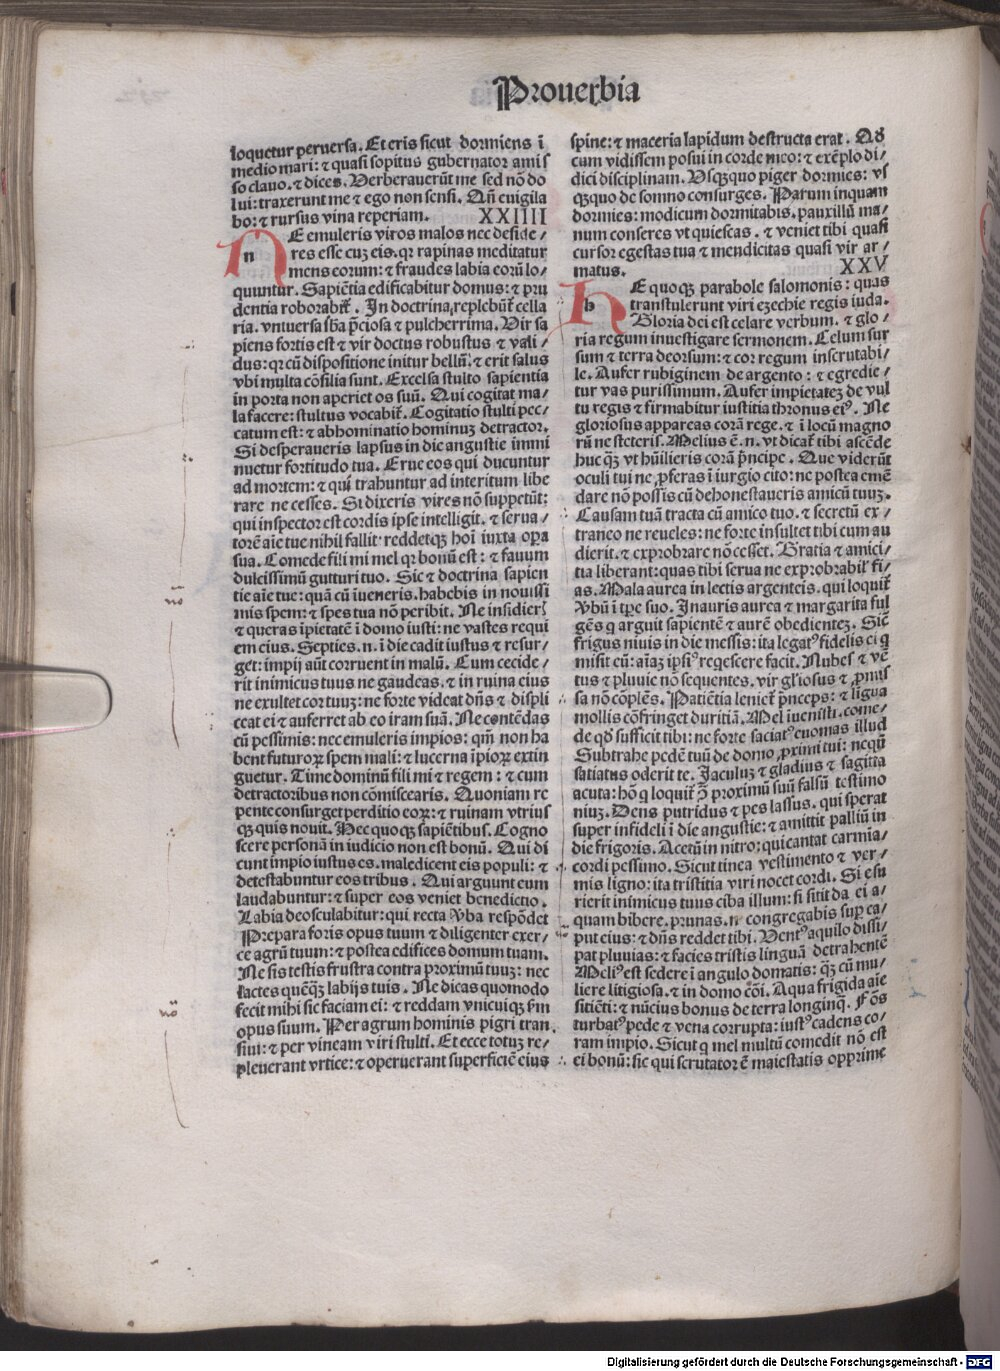 Prouerbia
loquetur peruersa. Et eris sicut dormiens ī
medio mari: ⁊ quasi sopitus gubernator amis
so clauo. ⁊ dices. Verberauerūt me sed nō do
lui: traxerunt me ⁊ ego non sensi. Qn̄ euigila
bo: ⁊ rursus vina reperiam. XXIIII
NE emuleris viros malos nec deside/
res esse cuꝫ eis. qꝛ rapinas meditatur
mens eorum: ⁊ fraudes labia eorū lo/
quuntur. Sapiētia edificabitur domus: ⁊ pru
dentia roborabit̄. In doctrina replebūt̄ cella
ria. vniuersa sb̄a p̄ciosa ⁊ pulcherrima. Vir sa
piens fortis est ⁊ vir doctus robustus ⁊ vali/
dus: qꝛ cū dispositione initur bellū: ⁊ erit salus
vbi multa cōsilia sunt. Excelsa stulto sapientia
in porta non aperiet os suū. Qui cogitat ma/
la facere: stultus vocabit̄. Cogitatio stulti pec/
catum est: ⁊ abhominatio hominuꝫ detractor.
Si desperaueris lapsus in die angustie immi
nuetur fortitudo tua. Erue eos qui ducuntur
ad mortem: ⁊ qui trahuntur ad interitum libe
rare ne cesses. Si dixeris vires nō suppetūt:
qui inspector est cordis ipse intelligit. ⁊ serua/
torē aīe tue nihil fallit: reddetqꝫ hoī iuxta oꝑa
sua. Comede fili mi mel qꝛ bonū est: ⁊ fauum
dulcissimū gutturi tuo. Sic ⁊ doctrina sapien
tie aīe tue: quā cū īueneris. habebis in nouissi
mis spem: ⁊ spes tua nō peribit. Ne insidieri᷒
⁊ queras īpietatē ī domo iusti: ne vastes requi
em eius. Septies. n. ī die cadit iustus ⁊ resur/
get: impij aūt corruent in malū. Cum cecide/
rit inimicus tuus ne gaudeas. ⁊ in ruina eius
ne exultet cor tuuꝫ: ne forte videat dn̄s ⁊ displi
ceat ei ⁊ auferret ab eo iram suā. Ne contēdas
cū pessimis: nec emuleris impios: qm̄ non ha
bent futuroꝝ spem mali: ⁊ lucerna īpioꝝ extin
guetur. Time dominū fili mi ⁊ regem: ⁊ cum
detractoribus non cōmiscearis. Quoniam re
pente consurget perditio eoꝝ: ⁊ ruinam vtrius
qꝫ quis nouit. Hec quoqꝫ sapiētibus. Cogno
scere personā in iudicio non est bonū. Qui di
cunt impio iustus es. maledicent eis populi: ⁊
detestabuntur eos tribus. Qui arguunt eum
laudabuntur: ⁊ super eos veniet benedictio.
Labia deosculabitur: qui recta v̄ba respōdet
Prepara foris opus tuum ⁊ diligenter exer/
ce agrū tuum: ⁊ postea edifices domum tuam.
Ne sis testis frustra contra proximū tuuꝫ: nec
lactes quēqꝫ labijs tuis. Ne dicas quomodo
fecit mihi sic faciam ei: ⁊ reddam vnicuiqꝫ ẜm
opus suum. Per agrum hominis pigri tran
siui: ⁊ per vineam viri stulti. Et ecce totuꝫ re/
pleuerant vrtice: ⁊ operuerant superficiē eius
spine: ⁊ maceria lapidum destructa erat. Qd̄
cum vidissem posui in corde meo: ⁊ exēplo di/
dici disciplinam. Vsqꝫquo piger dormies: vs
qꝫquo de somno consurges. Parum inquam
dormies: modicum dormitabis. pauxillū ma/
num conseres vt quiescas. ⁊ veniet tibi quasi
cursor egestas tua ⁊ mendicitas quasi vir ar/
matus. XXV
HE quoqꝫ parabole salomonis: quas
transtulerunt viri ezechie regis iuda.
Gloria dei est celare verbum. ⁊ glo/
ria regum inuestigare sermonem. Celum sur
sum ⁊ terra deorsum: ⁊ cor regum inscrutabi/
le. Aufer rubiginem de argento: ⁊ egredie/
tur vas purissimum. Aufer impietateꝫ de vul
tu regis ⁊ firmabitur iustitia thronus eiꝰ. Ne
gloriosus appareas corā rege. ⁊ ī locū magno
rū ne steteris. Melius ē. n. vt dicat̄ tibi ascēde
huc qꝫ vt hūilieris corā p̄ncipe. Que viderūt
oculi tui ne ꝓferas ī iurgio cito: ne postea emē
dare nō possis cū dehonestaueris amicū tuuꝫ.
Causam tuā tracta cū amico tuo. ⁊ secretū ex/
traneo ne reueles: ne forte insultet tibi cum au
dierit. ⁊ exprobrare nō cesset. Gratia ⁊ amici/
tia liberant: quas tibi serua ne exprobrabil̓ fi/
as. Mala aurea in lectis argenteis. qui loquit̄
v̄bū ī tꝑe suo. Inauris aurea ⁊ margarita ful
gēs q̄ arguit sapientē ⁊ aurē obedienteꝫ. Sic̄
frigus niuis in die messis: ita legatꝰ fidelis ei q̄
misit eū: aīaꝫ ipsiꝰ reqescere facit. Nubes ⁊ vē
tus ⁊ pluuie nō sequentes. vir gl̓iosus ⁊ ꝓmis
sa nō cōplēs. Patiētia leniet̄ p̄nceps: ⁊ ligua
mollis cōfringet duritiā. Mel īuenisti. come/
de qd̄ sufficit tibi: ne forte saciatꝰ euomas illud
Subtrahe pedē tuū de domo ꝓximi tui: neqū
satiatus oderit te. Jaculuꝫ ⁊ gladius ⁊ sagitta
acuta: hō q̄ loquit̄ ꝯ̄ proximū suū falsū testimo
niuꝫ. Dens putridus ⁊ pes lassus. qui sperat
super infideli ī die angustie: ⁊ amittit palliū in
die frigoris. Acetū in nitro: qui cantat carmia/
cordi pessimo. Sicut tinea vestimento ⁊ ver/
mis ligno: ita tristitia viri nocet cordi. Si esu
rierit inimicus tuus ciba illum: si sitit da ei a/
quam bibere. prunas. n. congregabis suꝑ ca/
put eius: ⁊ dn̄s reddet tibi. Ventꝰ aquilo dissi/
pat pluuias: ⁊ facies tristis linguā detrahentē
Meliꝰ est sedere ī angulo domatis: qꝫ cū mu/
liere litigiosa. ⁊ in domo cōi. Aqua frigida aīe
sitiēti: ⁊ nūcius bonus de terra longinq̄. Fōs
turbatꝰ pede ⁊ vena corrupta: iustꝰ cadens co/
ram impio. Sicut q̄ mel multū comedit nō est
ei bonū: sic qui scrutator ē maiestatis opprime
Digitalisierung gefördert durch die Deutsche Forschungsgemeinschaft - DFG